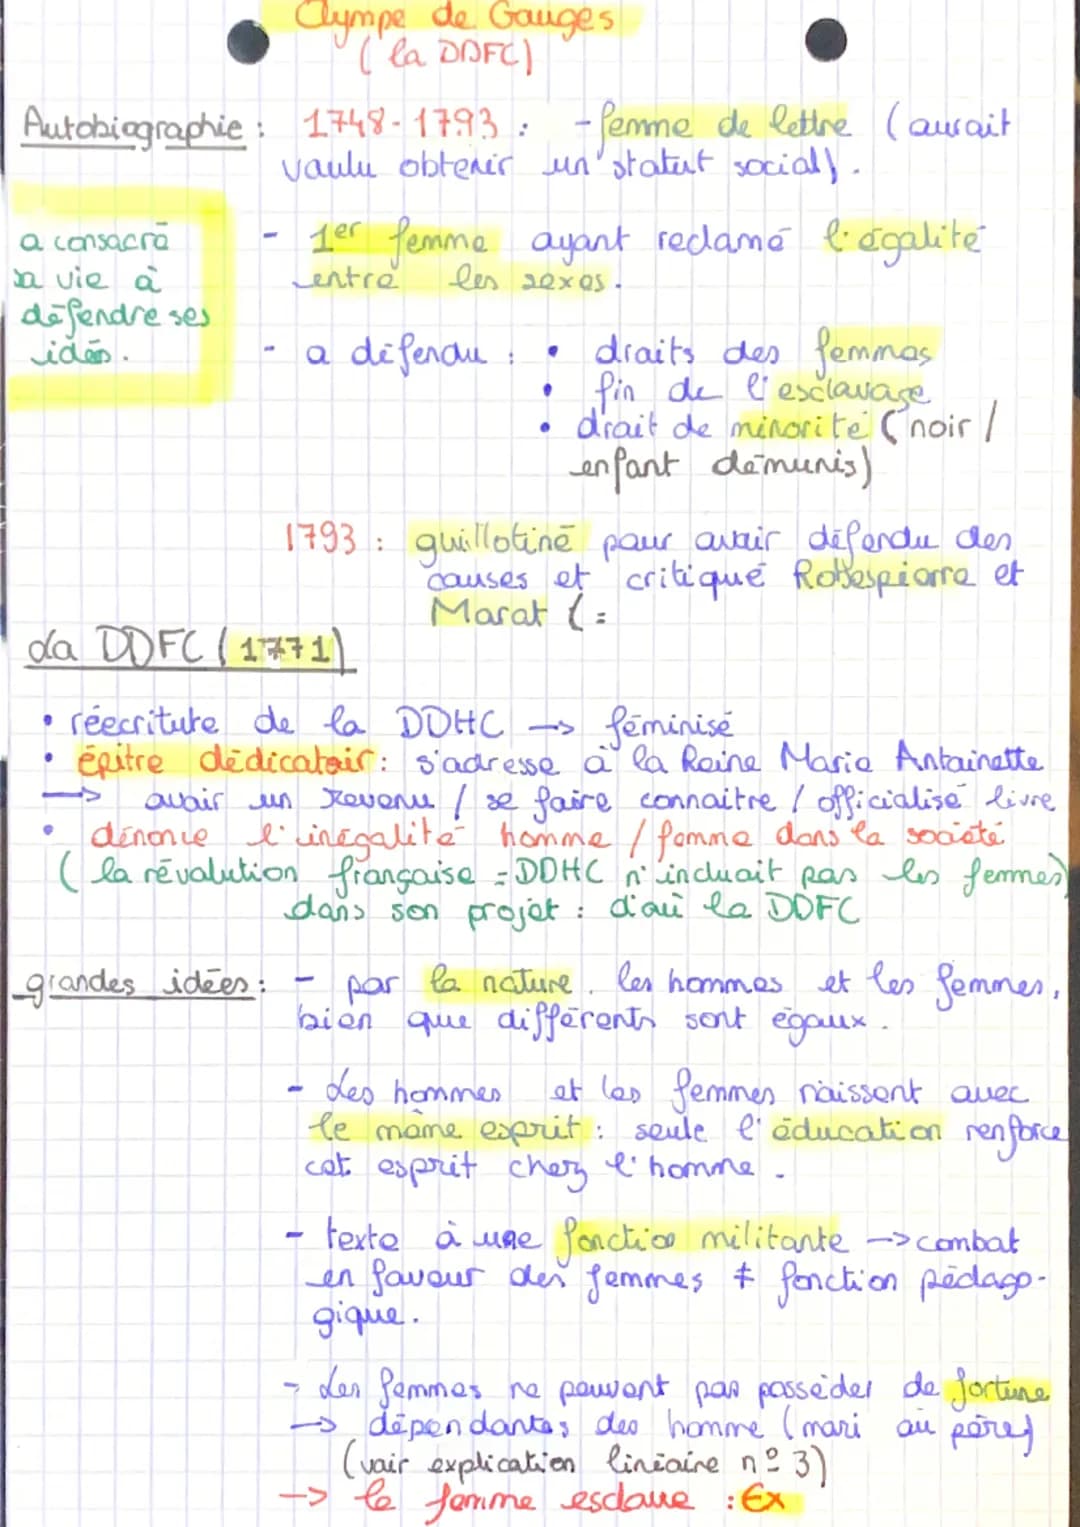 Olympe de Gouges
( la DDFC)
Autobiographie : 1748-1793 : - femme de lettre (aurait
voulu obtenir un statut social).
a consacré
sa vie à
défendre ses
idés.
- 1er femme ayant reclamé l'égalité
entre les sexes.
- a défendu : • droits des femmes
• fin de l'esclavage
• droit de minorité (noir /
enfant démunis)
1793 : guillotiné pour avoir défendu des
causes et critiqué Robespierre et
Marat (=
La DDFC (1771)
• réecriture de la DDHC -> féminisé
• épitre dédicatoir : s'adresse à la Reine Marie Antoinette
-> avoir un revenu / se faire connaitre / officialisé livre
• dénonce l'inégalité homme / femme dans la société
( la révolution française = DDHC n'incluait pas les femmes)
dans son projet : d'où la DDFC
grandes idées : - par la nature, les hommes et les femmes,
bien que différents sont égaux.
- Les hommes et les femmes naissent avec
le même esprit : seule l'éducation renforce
cet esprit chez l'homme.
- texte à une fonction militante -> combat
en faveur des femmes ≠ fonction pédago-
gique.
- Les femmes ne peuvent pas posséder de fortune
-> dépendantes des homme (mari ou père)
(voir explication linéaire n° 3)
-> la femme esclave : Ex